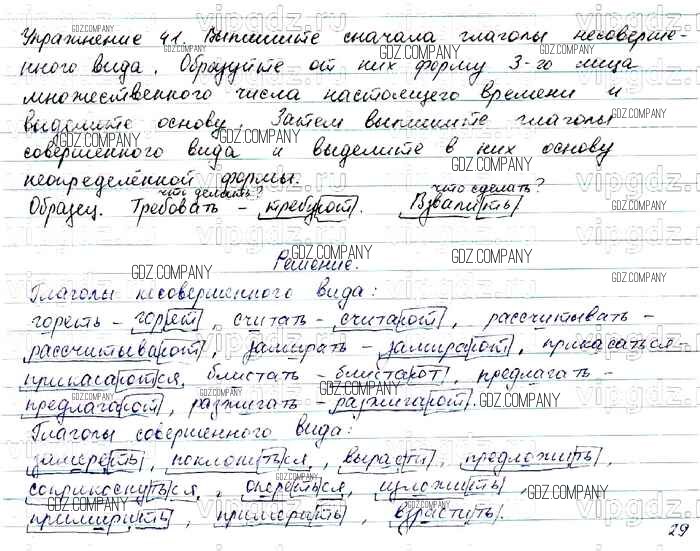 Упражнение 41. Выпишите сначала глаголы несоверше-
нного вида. Образуйте от них форму 3-го лица
множественного числа настоящего времени и
выделите основу. Затем выпишите глаголы
совершенного вида и выделите в них основу
неопределённой формы.
что делать? что сделать?
Образец. Требовать - требуют. Взвалить
Решение.
Глаголы несовершенного вида:
гореть - горят, считать - считают, рассчитывать -
рассчитывают, замирать - замирают, прикасаться -
прикасаются, блистать - блистают, предлагать -
предлагают, разжигать - разжигают.
Глаголы совершенного вида:
замереть, поклониться, вырасти, предложить,
соприкоснуться, опереться, изложить,
примирить, примерить, взрастить.
29
GDZ.COMPANY
vipgdz.ru